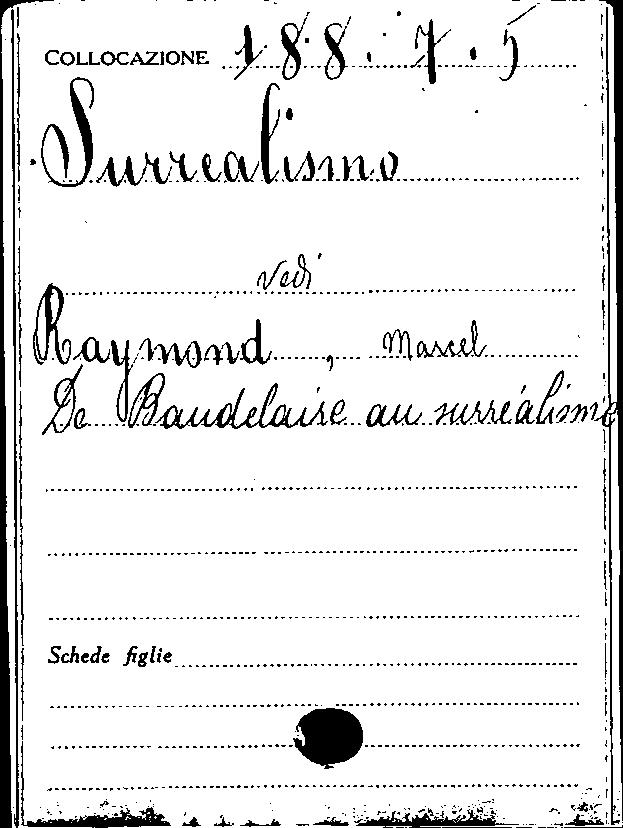 COLLOCAZIONE 188.7.5
Surrealismo
Vedi
Raymond, Marcel
De Baudelaire au surréalisme
Schede figlie